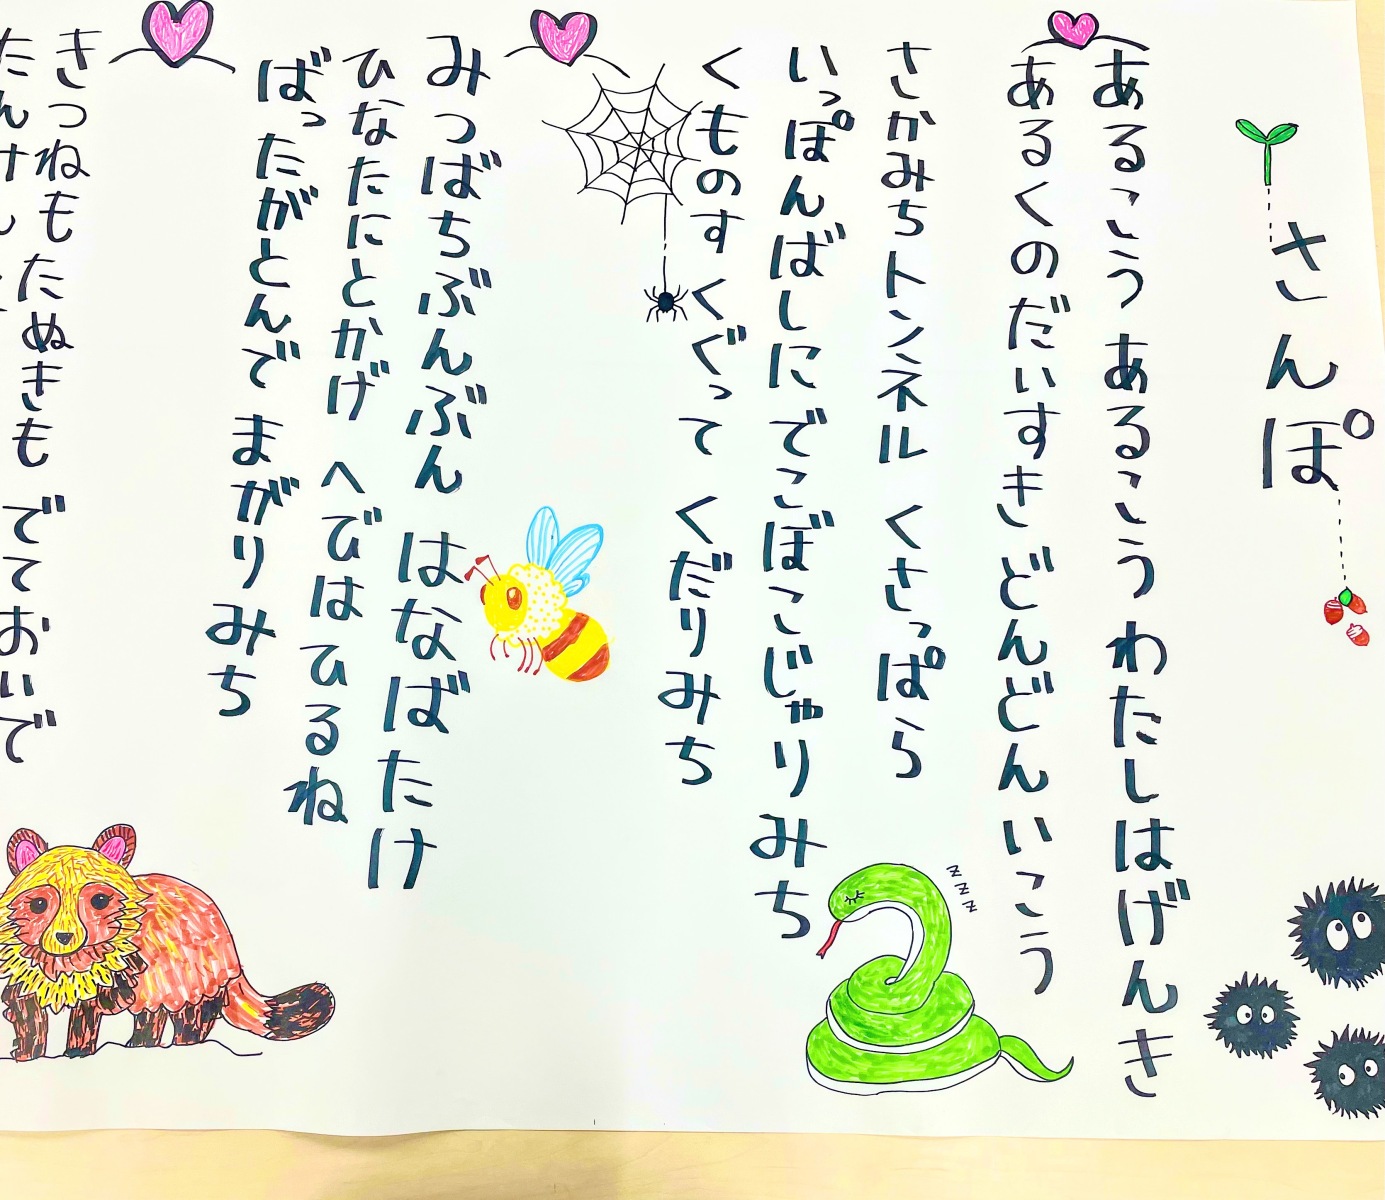 さんぽ
あるこう あるこう わたしはげんき
あるくのだいすき どんどん いこう
さかみちトンネル くさっぱら
いっぽんばしに でこぼこじゃりみち
くものす くぐって くだりみち
みつばちぶんぶん はなばたけ
ひなたにとかげ へびはひるね
ばったがとんで まがりみち
きつねもたぬきも でておいで
zzz